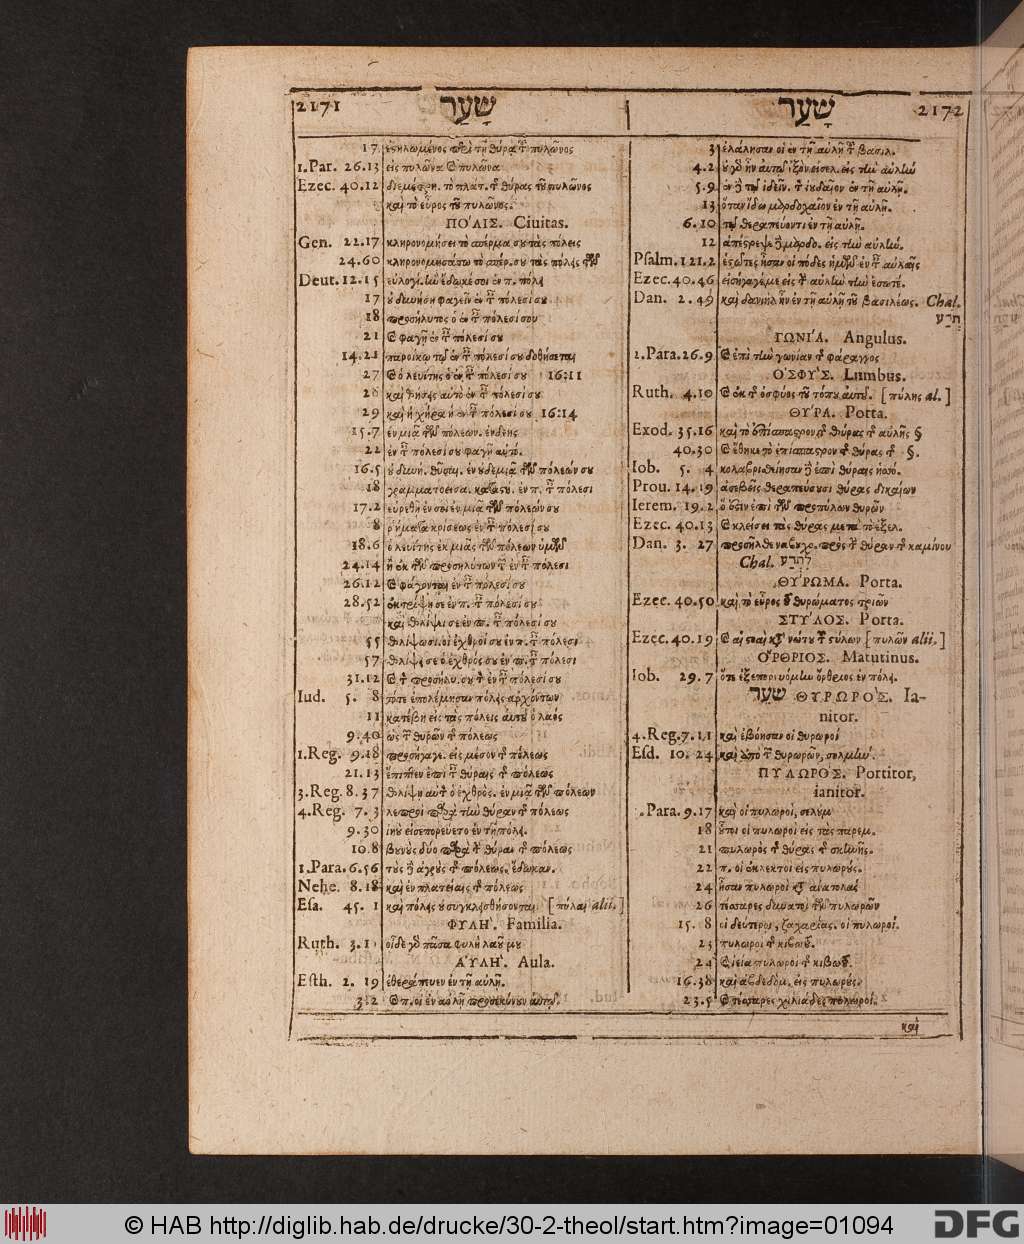 2171 שַׁעַר
17 ἐστηλωμένος παρὰ τὴν θύραν τῆς πυλῶνος
1. Par. 26.13 εἰς πυλῶνα καὶ πυλῶνα
Ezec. 40.12 διεμέτρη. τὸ πλάτ. τῆς θύρας τοῦ πυλῶνος
καὶ τὸ εὖρος τοῦ πυλῶνος.
ΠΟΛΙΣ. Ciuitas.
Gen. 22.17 κληρονομήσει τὸ σπέρμα σου τὰς πόλεις
24.60 κληρονομησάτω τὸ σπέρ. σου τὰς πόλεις τῶν
Deut. 12.15 ἔδωκέ σοι ἐν π. πόλει
17 οὐ δυνήσῃ φαγεῖν ἐν ταῖς πόλεσί σου
18 προσήλυτος ὁ ἐν ταῖς πόλεσί σου
21 καὶ φαγῇ ἐν ταῖς πόλεσί σου
14.21 παροίκῳ τῷ ἐν ταῖς πόλεσί σου δοθήσεται
27 καὶ ὁ λευίτης ὁ ἐν ταῖς πόλεσί σου 16:11
28 καὶ θήσεις αὐτὸ ἐν ταῖς πόλεσί σου
29 καὶ ἡ χήρα ἡ ἐν ταῖς πόλεσί σου 16:14
15.7 ἐν μιᾷ τῶν πόλεων. ἐνδεὴς
22 ἐν ταῖς πόλεσί σου φαγῇ αὐτό.
16.5 οὐ δυνή. θῦσαι. ἐν οὐδεμιᾷ τῶν πόλεών σου
18 γραμματοεισα. καταστ. ἐν π. ταῖς πόλεσι
17.2 εὑρεθῇ ἐν σοὶ ἐν μιᾷ τῶν πόλεών σου
8 ῥήματα κρίσεως ἐν ταῖς πόλεσί σου
18.6 ὁ λευίτης ἐκ μιᾶς τῶν πόλεων ὑμῶν
24.14 ἢ ἐκ τῶν προσηλύτων τῶν ἐν ταῖς πόλεσι
26.12 καὶ φάγονται ἐν ταῖς πόλεσί σου
28.52 ἐκτρίψῃ σε ἐν π. ταῖς πόλεσί σου
καὶ θλίψει σε ἐν π. ταῖς πόλεσί σου
55 θλίψωσι. οἱ ἐχθροί σου ἐν π. ταῖς πόλεσι
57 θλίψει σε ὁ ἐχθρός σου ἐν π. ταῖς πόλεσι
31.12 καὶ τὸν προσήλυ. σου τὸν ἐν ταῖς πόλεσί σου
Iud. 5. 8 τότε ἐπολέμησαν πόλεις ἀρχόντων
11 κατέβη εἰς τὰς πόλεις αὐτοῦ ὁ λαός
9.40 ἕως τῶν θυρῶν τῆς πόλεως
1. Reg. 9.18 προσήγαγε. εἰς μέσον τῆς πόλεως
21.13 ἔπιπτεν ἐπὶ ταῖς θύραις τῆς πόλεως
3. Reg. 8.37 θλίψῃ αὐτὸν ὁ ἐχθρὸς. ἐν μιᾷ τῶν πόλεων
4. Reg. 7. 3 λεπροὶ παρὰ τὴν θύραν τῆς πόλεως
9.30 ἰηοὺ εἰσεπορεύετο ἐν τῇ πόλει.
10.8 βουνοὺς δύο παρὰ τὴν θύραν τῆς πόλεως
1. Para. 6.56 τοὺς δὲ ἀγροὺς τῆς πόλεως. ἔδωκαν.
Nehe. 8.18 καὶ ἐν πλατείαις τῆς πόλεως
Esa. 45. 1 καὶ πόλεις οὐ συγκλεισθήσονται [πύλαι alii.]
ΦΥΛΗ. Familia.
Ruth. 3. 1 οἶδε γὰρ πᾶσα φυλὴ λαοῦ μου
ΑΥΛΗ. Aula.
Esth. 2. 19 ἐθεράπευεν ἐν τῇ αὐλῇ.
3. 2 καὶ π. οἱ ἐν αὐλῇ προσεκύνουν αὐτῷ.
שַׁעַר 2172
3 ἐλάλησαν οἱ ἐν τῇ αὐλῇ τοῦ βασιλ.
4.2 οὐ γὰρ ἦν αὐτῷ ἐξὸν εἰσελ. εἰς τὴν αὐλὴν
5.9 ἐν δὲ τῷ ἰδεῖν. τὸν ἰουδαῖον ἐν τῇ αὐλῇ.
13 ὅταν ἴδω μαρδοχαῖον ἐν τῇ αὐλῇ.
6.10 τῷ θεραπεύοντι ἐν τῇ αὐλῇ.
12 ἀπέστρεψε δὲ μαρδο. εἰς τὴν αὐλήν.
Psalm. 121.2 ἑστῶτες ἦσαν οἱ πόδες ἡμῶν ἐν ταῖς αὐλαῖς
Ezec. 40.46 εἰσήγαγέ με εἰς τὴν αὐλὴν τὴν ἐσωτέ.
Dan. 2. 49 καὶ δανιὴλ ἦν ἐν τῇ αὐλῇ τοῦ βασιλέως. Chal.
תְּרַע
ΓΩΝΙΑ. Angulus.
2. Para. 26.9 καὶ ἐπὶ τὴν γωνίαν τῆς φάραγγος
ΟΣΦΥΣ. Lumbus.
Ruth. 4.10 καὶ ἐκ τῆς ὀσφύος τοῦ τόπου αὐτοῦ. [πύλης al.]
ΘΥΡΑ. Porta.
Exod. 35.16 καὶ τὸ ἐπίσπαστρον τῆς θύρας τῆς αὐλῆς §
40.30 καὶ ἔθηκε τὸ ἐπίσπαστρον τῆς θύρας τῆς §.
Iob. 5. 4 κολαβρισθείησαν δὲ ἐπὶ θύραις ἡσσό.
Prou. 14. 19 ἀσεβεῖς θεραπεύσουσι θύρας δικαίων
Ierem. 19. 2 ὅ ἐστιν ἐπὶ τῶν προπύλων θυρῶν
Ezec. 40.13 καὶ κλείσει τὰς θύρας μετὰ τὸ ἐξελ.
Dan. 3. 27 προσῆλθε ναβουχο. πρὸς τὴν θύραν τῆς καμίνου
Chal. לִתְרַע
ΘΥΡΩΜΑ. Porta.
Ezec. 40.50 καὶ τὸ εὖρος τοῦ θυρώματος τριῶν
ΣΤΥΛΟΣ. Porta.
Ezec. 40.19 καὶ αἱ στοαὶ κατὰ νώτου τῶν στύλων [πυλῶν alii.]
ΟΡΘΡΙΟΣ. Matutinus.
Iob. 29. 7 ὅτε ἐξεπορευόμην ὄρθριος ἐν πόλει.
שֹׁעֵר ΘΥΡΩΡΟΣ. Ia-
nitor.
4. Reg. 7. 11 καὶ ἐβόησαν οἱ θυρωροὶ
Esd. 10. 24 καὶ ἀπὸ τῶν θυρωρῶν, σολμήν.
ΠΥΛΩΡΟΣ. Portitor,
ianitor.
.Para. 9.17 καὶ οἱ πυλωροί, σελὺμ
18 οὗτοι οἱ πυλωροὶ εἰς τὰς παρεμ.
21 πυλωρὸς τῆς θύρας τῆς σκηνῆς.
22 π. οἱ ἐκλεκτοὶ εἰς πυλωρούς.
24 ἦσαν πυλωροὶ κατὰ ἀνατολὰς
26 τέσσαρες δυνατοὶ τῶν πυλωρῶν
15. 8 οἱ δεύτεροι, ζαχαρίας. οἱ πυλωροί.
23 πυλωροὶ τῆς κιβωτοῦ.
24 καὶ ἰεία πυλωροὶ τῆς κιβωτοῦ.
16.38 καὶ ἀβδεδὸμ. εἰς πυλωρούς.
23.5 καὶ τέσσαρες χιλιάδες πυλωροί.
καὶ
© HAB http://diglib.hab.de/drucke/30-2-theol/start.htm?image=01094
DFG